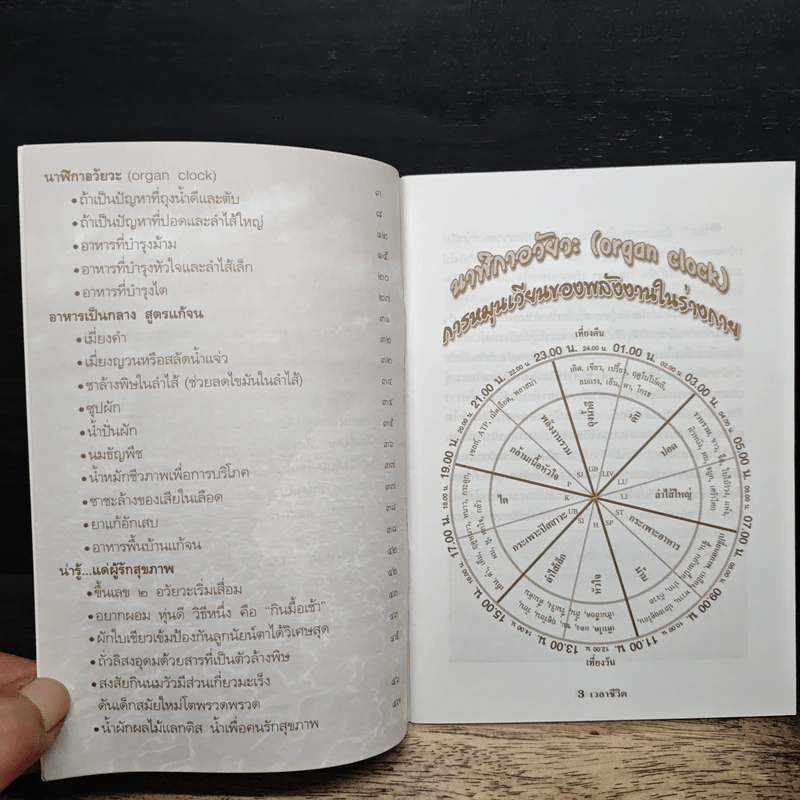 นาฬิกาอวัยวะ (organ clock)
• ถ้าเป็นปัญหาที่ถุงน้ำดีและตับ ๓
• ถ้าเป็นปัญหาที่ปอดและลำไส้ใหญ่ ๘
• อาหารที่บำรุงม้าม ๑๒
• อาหารที่บำรุงหัวใจและลำไส้เล็ก ๑๕
• อาหารที่บำรุงไต ๒๐
๒๗
อาหารเป็นกลาง สูตรแก้จน ๓๑
• เมี่ยงคำ ๓๒
• เมี่ยงญวนหรือสลัดน้ำแจ่ว ๓๒
• ชาล้างพิษในลำไส้ (ช่วยลดไขมันในลำไส้) ๓๔
• ซุปผัก ๓๔
• น้ำปั่นผัก ๓๕
• นมธัญพืช ๓๖
• น้ำหมักชีวภาพเพื่อการบริโภค ๓๗
• ชาชะล้างของเสียในเลือด ๓๗
• ยาแก้อักเสบ ๓๘
• อาหารพื้นบ้านแก้จน ๓๘
น่ารู้...แด่ผู้รักสุขภาพ ๔๒
• ขึ้นเลข ๒ อวัยวะเริ่มเสื่อม ๔๒
• อยากผอม หุ่นดี วิธีหนึ่ง คือ “กินมื้อเช้า” ๔๓
• ผักใบเขียวเข้มป้องกันลูกนัยน์ตาได้วิเศษสุด ๔๓
• ถั่วลิสงอุดมด้วยสารที่เป็นตัวล้างพิษ ๔๕
• สงสัยกินนมวัวมีส่วนเกี่ยวมะเร็ง
ดันเด็กสมัยใหม่โตพรวดพรวด ๔๖
• น้ำผักผลไม้แลกติส น้ำเพื่อคนรักสุขภาพ ๔๗
นาฬิกาอวัยวะ (organ clock)
การหมุนเวียนของพลังงานในร่างกาย
เที่ยงคืน
23.00 น.
24.00 น.
01.00 น.
02.00 น.
03.00 น.
04.00 น.
05.00 น.
06.00 น.
07.00 น.
09.00 น.
10.00 น.
11.00 น.
12.00 น.
13.00 น.
15.00 น.
17.00 น.
19.00 น.
20.00 น.
21.00 น.
22.00 น.
ถุงน้ำดี
ตับ
ปอด
ลำไส้ใหญ่
กระเพาะอาหาร
ม้าม
หัวใจ
ลำไส้เล็ก
กระเพาะปัสสาวะ
ไต
กล้ามเนื้อหัวใจ
พลังงานรวม
GB
LIV
LU
LI
ST
SP
H
SI
UB
K
P
SJ
เที่ยงวัน
3 เวลาชีวิต